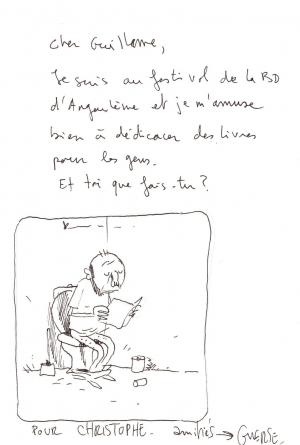 Cher Guillaume,
Je suis au festival de la BD
d'Angoulême et je m'amuse
bien à dédicacer des livres
pour les gens.
Et toi que fais-tu ?
POUR CHRISTOPHE. amitiés → GUERSE.